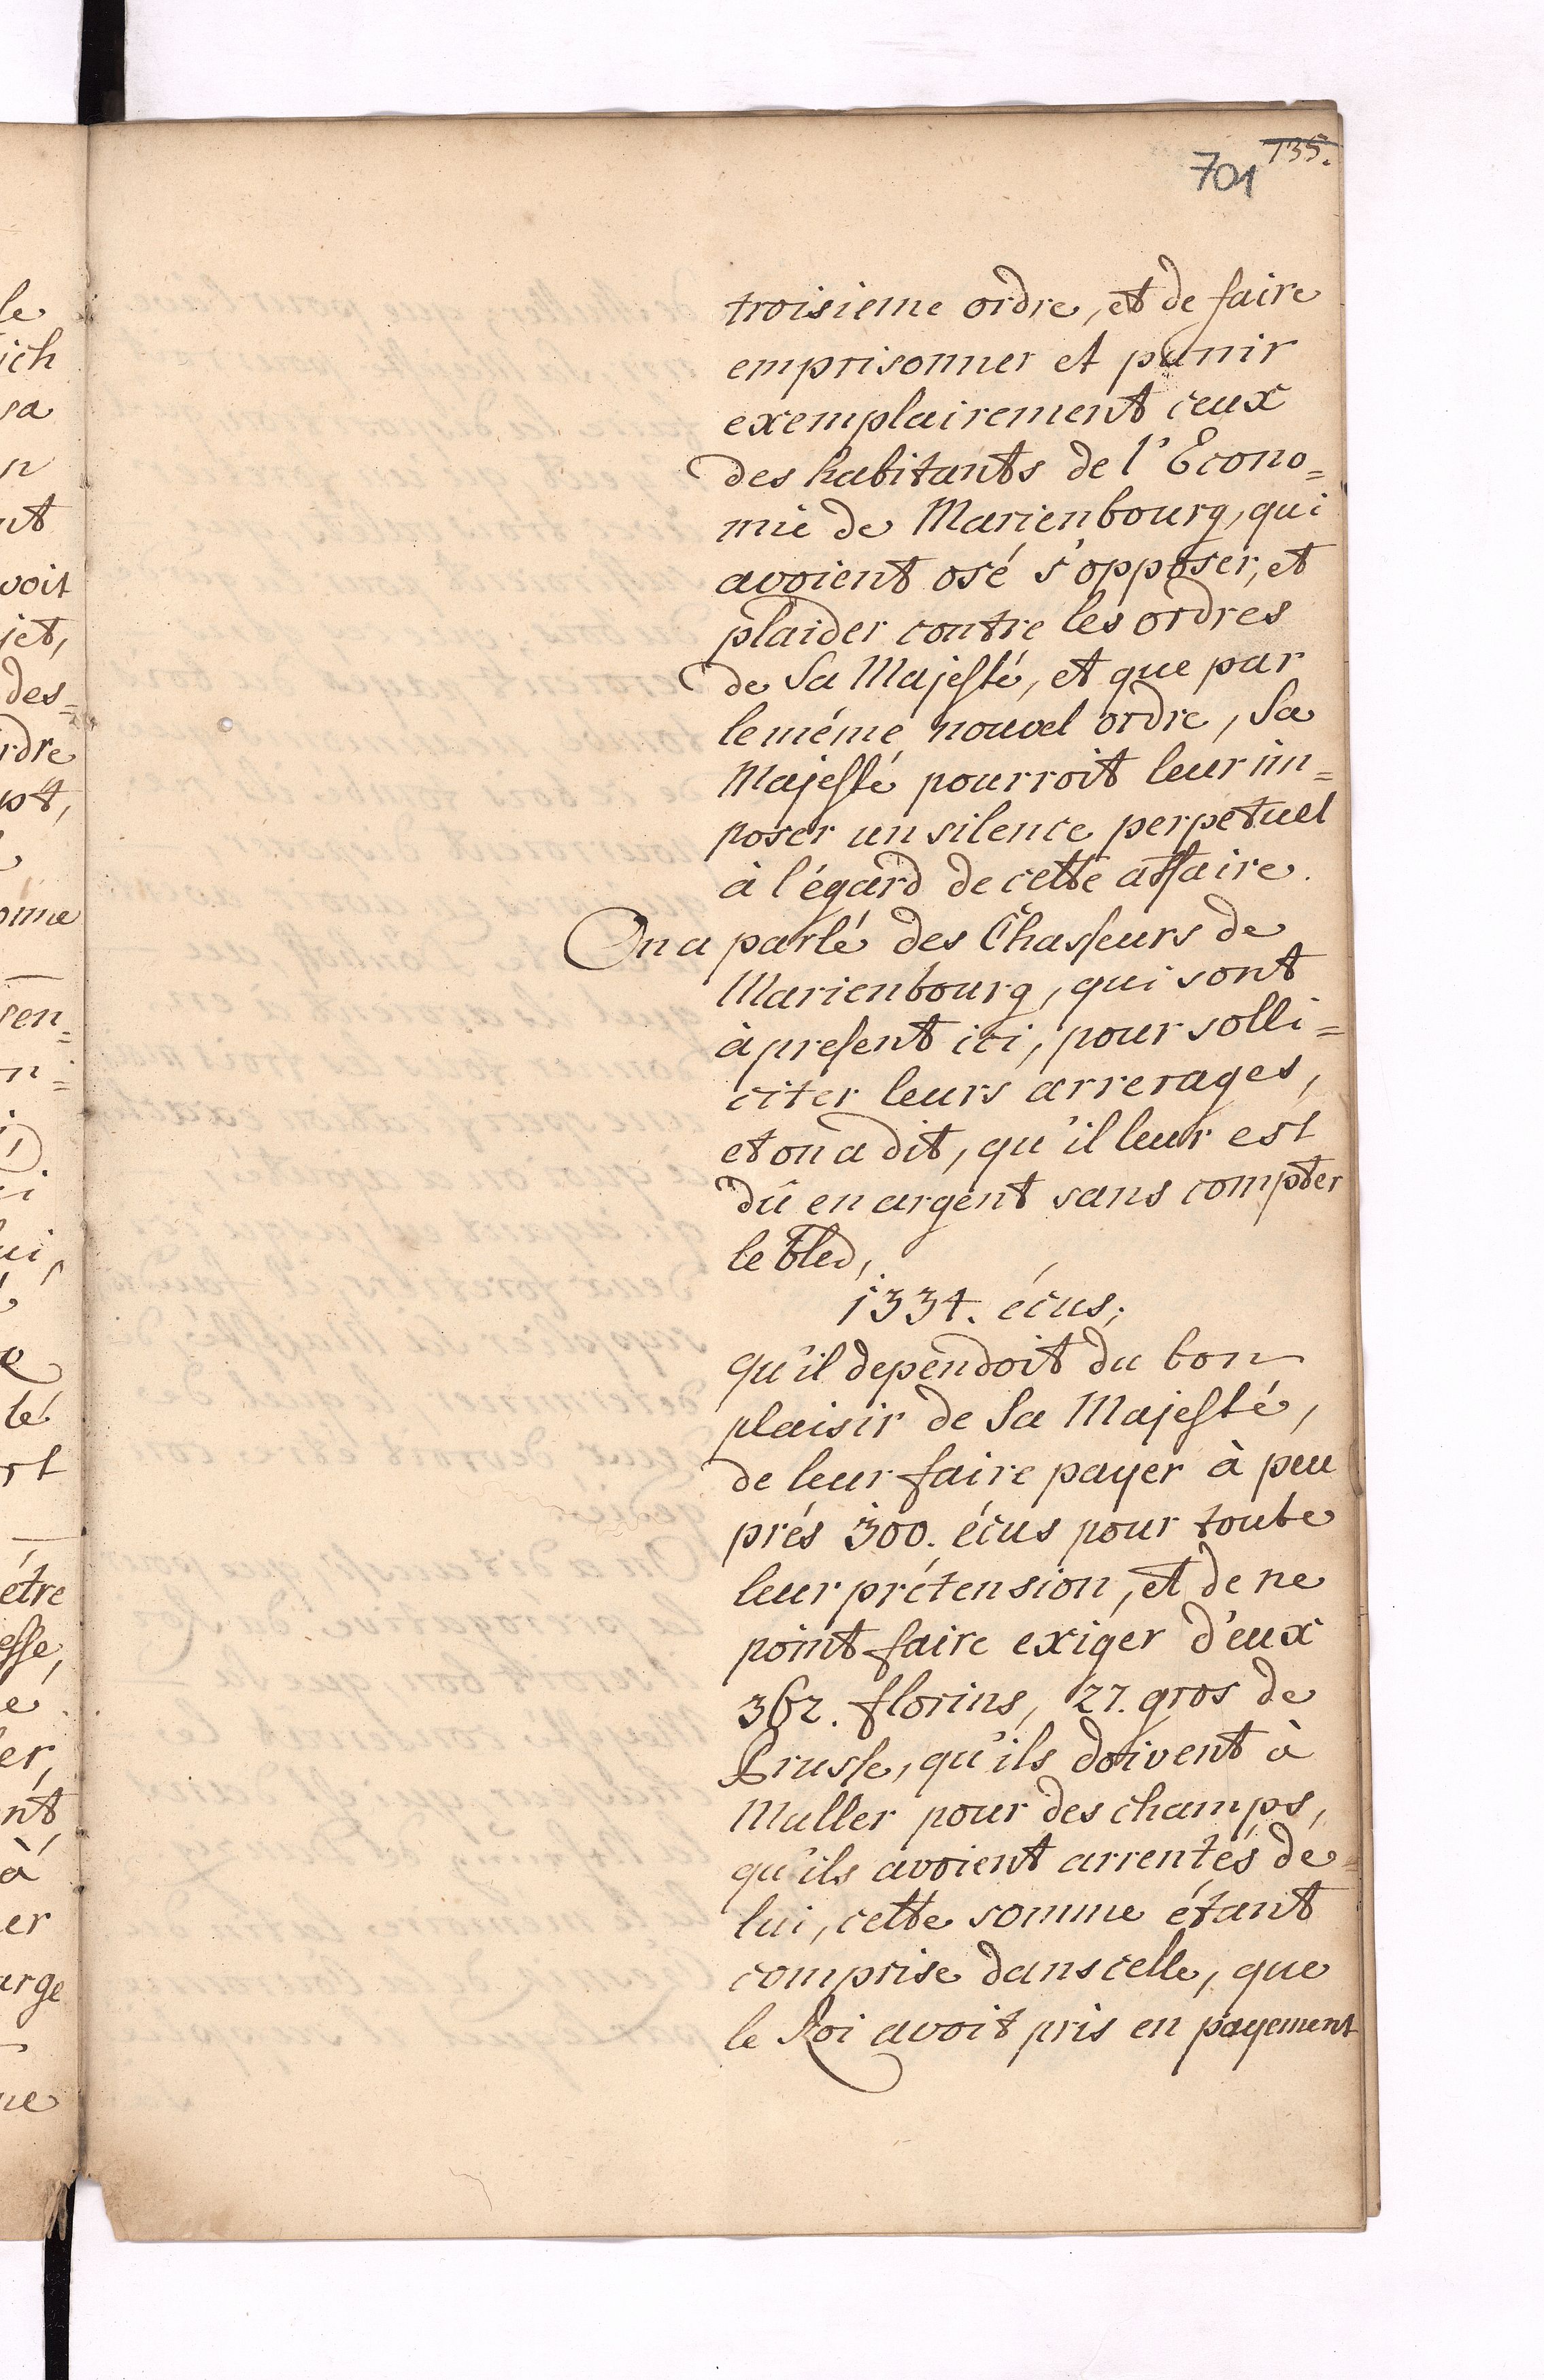 135.
701
troisieme ordre, et de faire
emprisonner et punir
exemplairement ceux
des habitants de l'Econo=
mie de Marienbourg, qui
avoient osé s'opposer, et
plaider contre les ordres
de Sa Majesté, et que par
le méme nouvel ordre, Sa
Majesté pourroit leur im=
poser un silence perpetuel
à l'égard de cette affaire.
On a parlé des Chasseurs de
Marienbourg, qui sont
à present ici, pour solli=
citer leurs arrerages,
et on a dit, qu'il leur est
dû en argent sans compter
le bled,
1334. écus;
qu'il dependoit du bon
plaisir de Sa Majesté,
de leur faire payer à peu
prés 300. écus pour toute
leur prétension, et de ne
point faire exiger d'eux
362. florins, 27. gros de
Prusse, qu'ils doivent à
Muller pour des champs,
qu'ils avoient arrentés de
lui, cette somme étant
comprise dans celle, que
le Roi avoit pris en payement